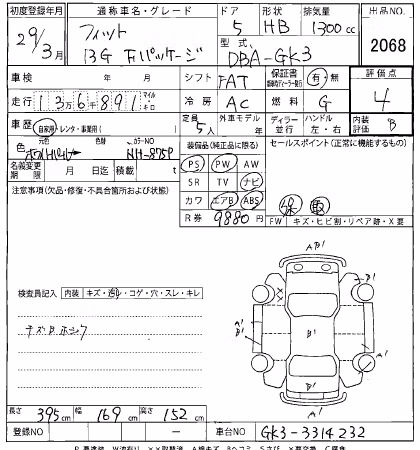 初度登録年月 通称車名・グレード ドア 形状 排気量 出品NO.
29/3月 フィット 5 HB 1300cc 2068
13G Fパッケージ 型式 DBA-GK3
車検 年 月 シフト FAT 保証書 有 無 評価点
走行 13万6千891 マイル キロ 冷房 AC 燃料 G 4
車歴 自家用 レンタ・事業用( ) 定員 5人 外車モデル 年 ディーラー 並行 ハンドル 左・右 内装評価 B
色 元色 色替 カラーNO NH-875P 装備品(純正品に限る) セールスポイント(正常に機能するもの)
名義変更期限 月 日迄 積載 t PS PW AW
注意事項(欠品・修復・不具合箇所および状態) SR TV ナビ
カワ エアB ABS
R券 9880円 FW キズ・ヒビ割・リペア跡・X要
検査員記入 内装 キズ・汚レ・コゲ・穴・スレ・キレ
A B'
B'
A'
B'
B'
A'
B'
A'
A B'
長さ 395cm 幅 169cm 高さ 152cm
登録NO － 車台NO GK3-3314232